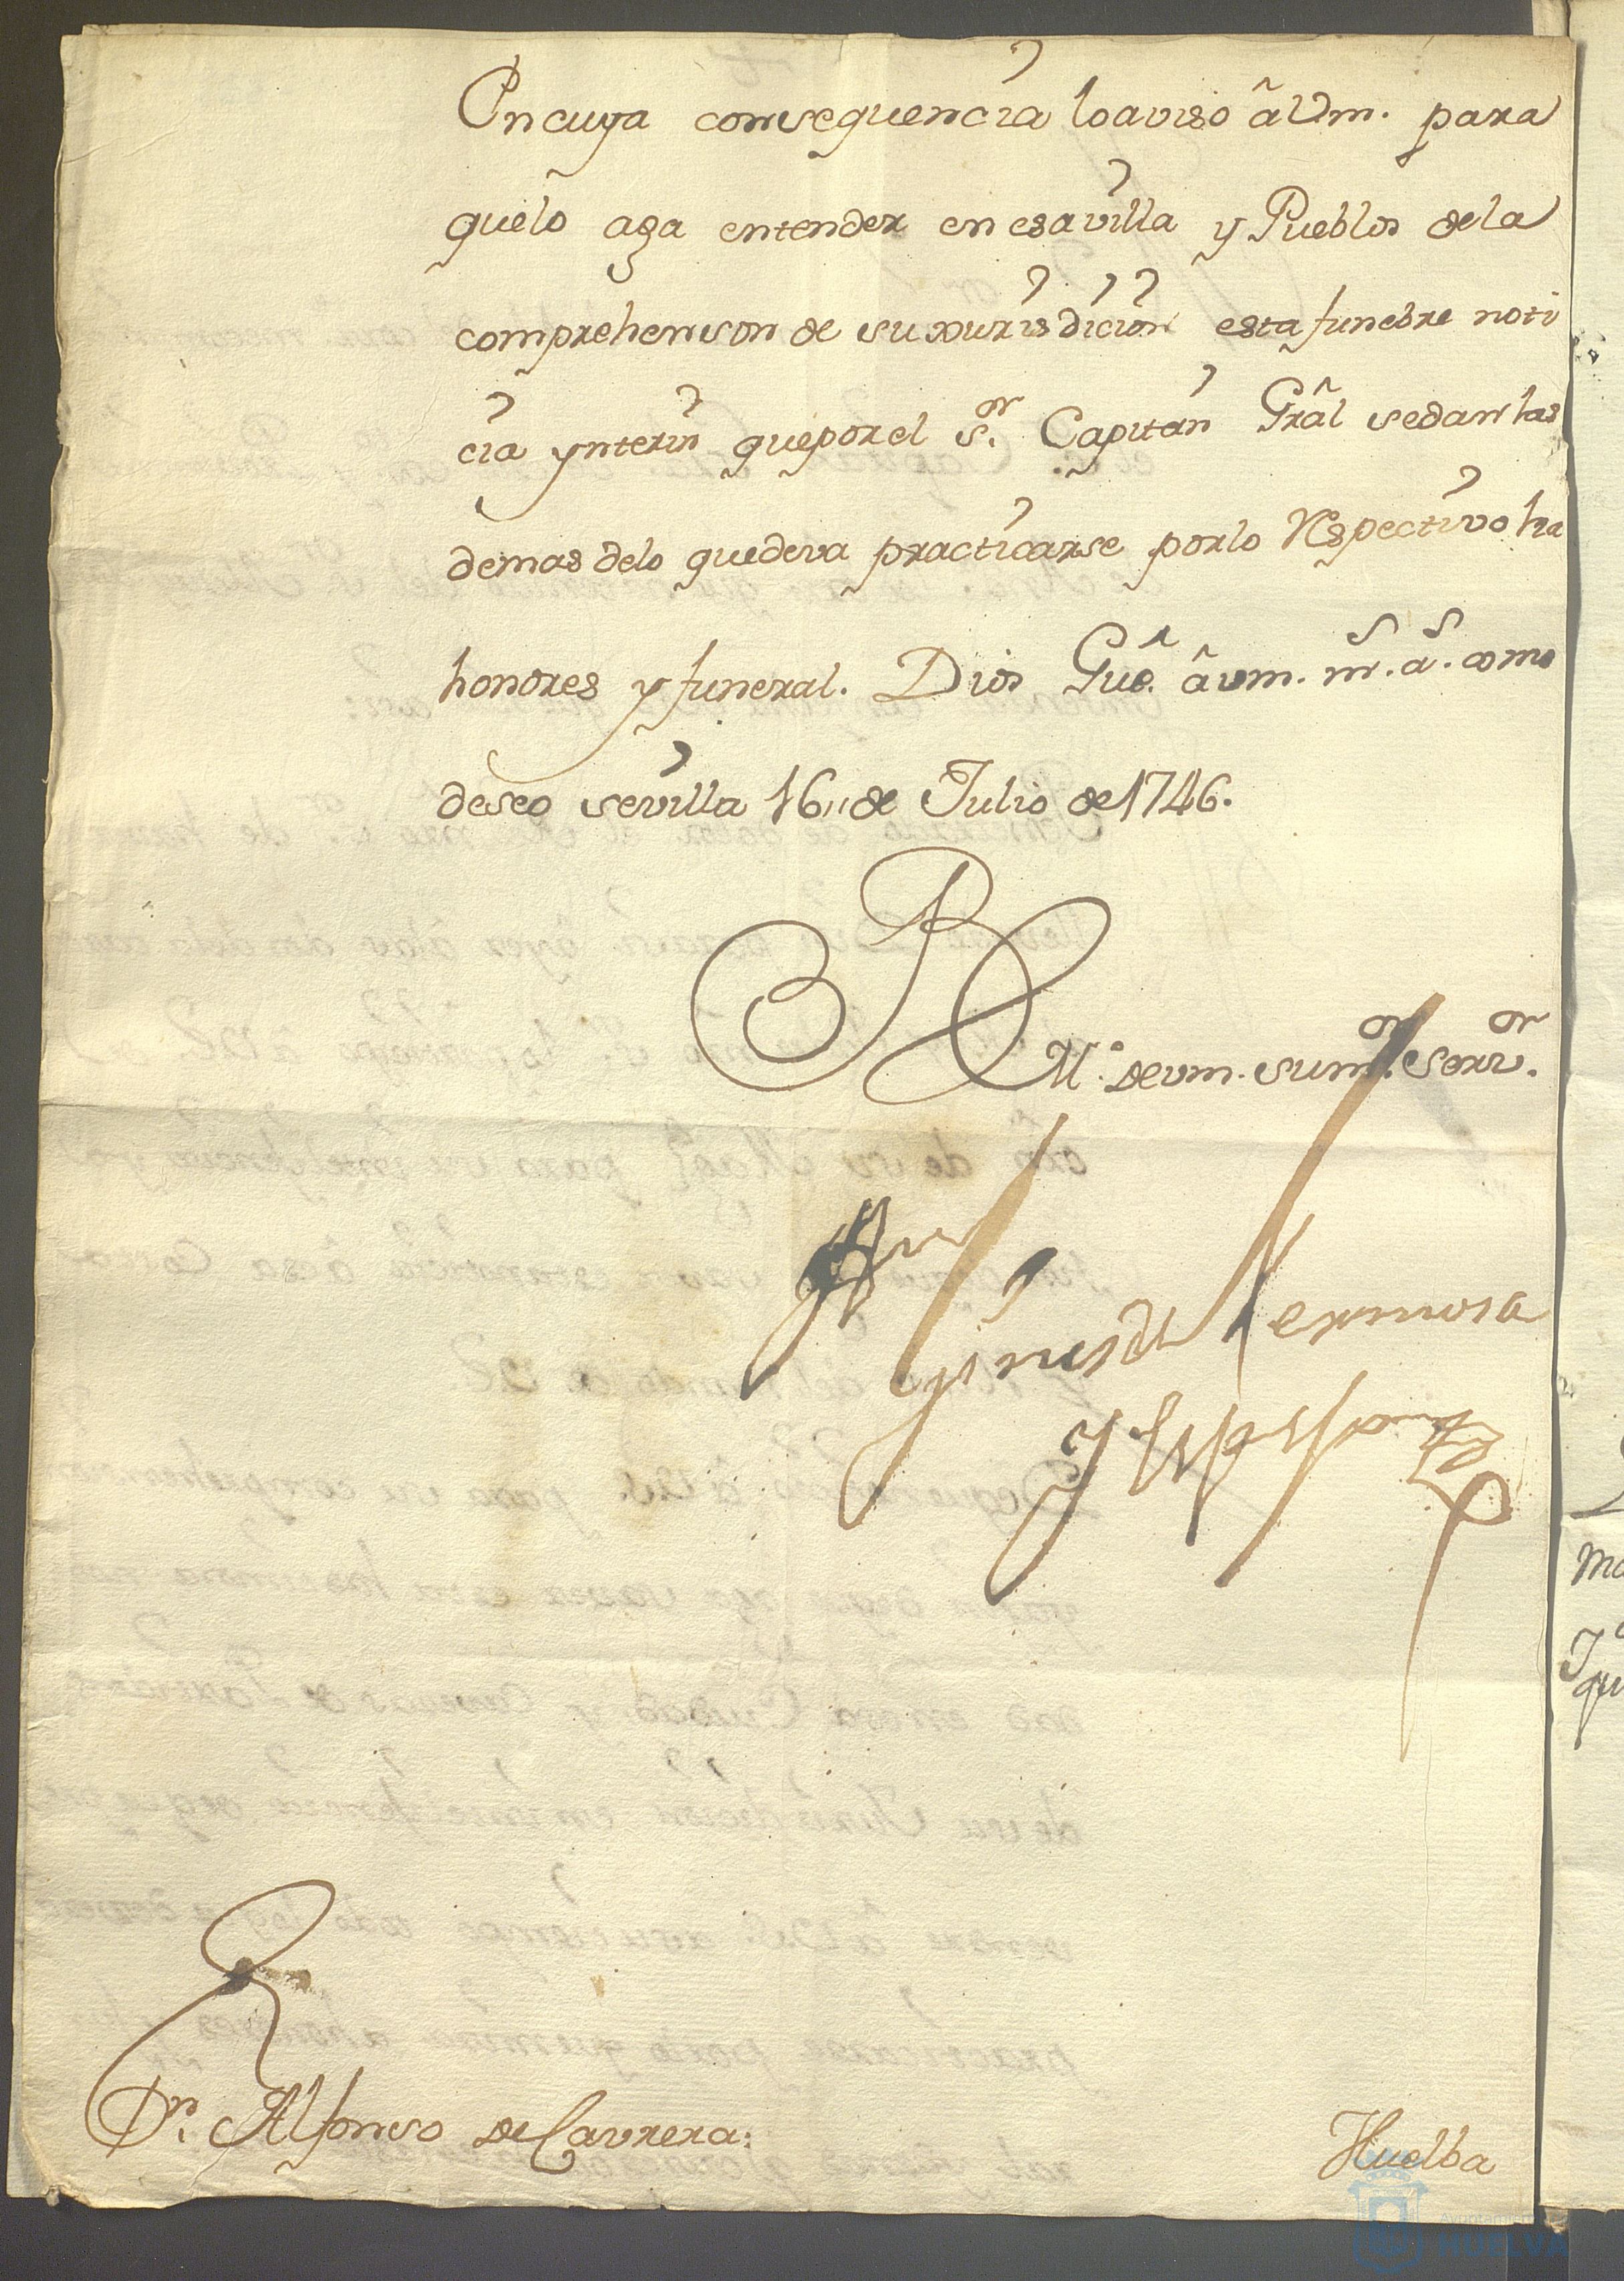 En cuya consequencia lo aviso â Vm. para
que lo aga entender en esa villa y Pueblos de la
comprehension de su xurisdicion esta funebre noti
cia ynterin que por el Sor. Capitan Grâl se dan las
demas de lo que deva practicarse por lo Respectivo ha
honores y funeral. Dios Gue. â vm. ms. as. como
deseo sevilla 16,, de Julio de 1746.
B
L Mo. de vm. su mor. serv.or
Gines de Hermosa
y Espejo
Dn. Alfonso de Cavrera:
Huelba
Ayuntamiento
HUELVA